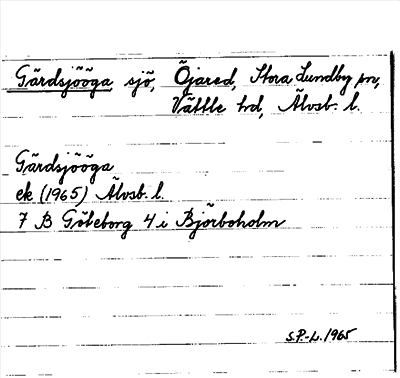 Gärdsjööga sjö, Öjared, Stora Lundby sn,
Vättle hd, Älvsb. l.
Gärdsjööga
ek (1965) Älvsb. l.
7 B Göteborg 4 i Björboholm
S.P.-L. 1965